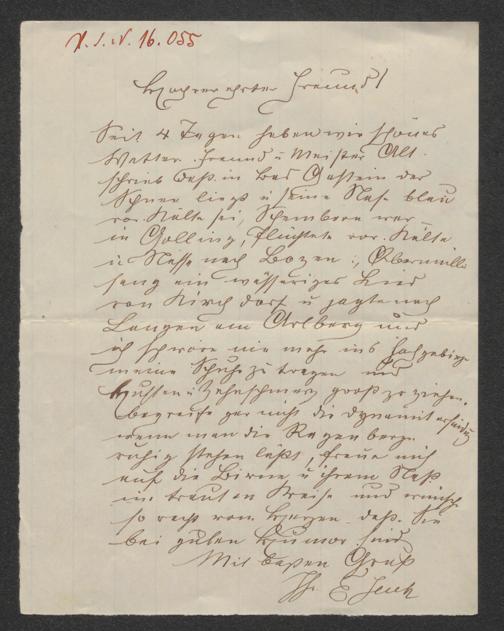 H. I. N. 16.055
Hochverehrter Freund!
Seit 4 Tagen haben wir schönes
Wetter. Freund u Meister Alt
schrieb daß in Bad Gastein der
Schnee liegt u seine Nase blau
vor Kälte sei, Schembera war
in Golling, flüchtete vor Kälte
u Nässe nach Bozen,
sang ein wässeriges Lied
von Kirchdorf u jagte nach
Langen am Arlberg und
ich schwöre nie mehr ins Hochgebirge
meine Schuhe zu tragen und
Husten u Zahnschmerz groß zu ziehen.
begreife gar nicht die Dynamit
wenn man die Regenberge
ruhig stehen läßt, freue mich
auf die Birne u ihrem Naß
im trauten Kreise und wünsche
so recht von Herzen daß Sie
bei guten Humor sind
Mit besten Gruß
Ihr E